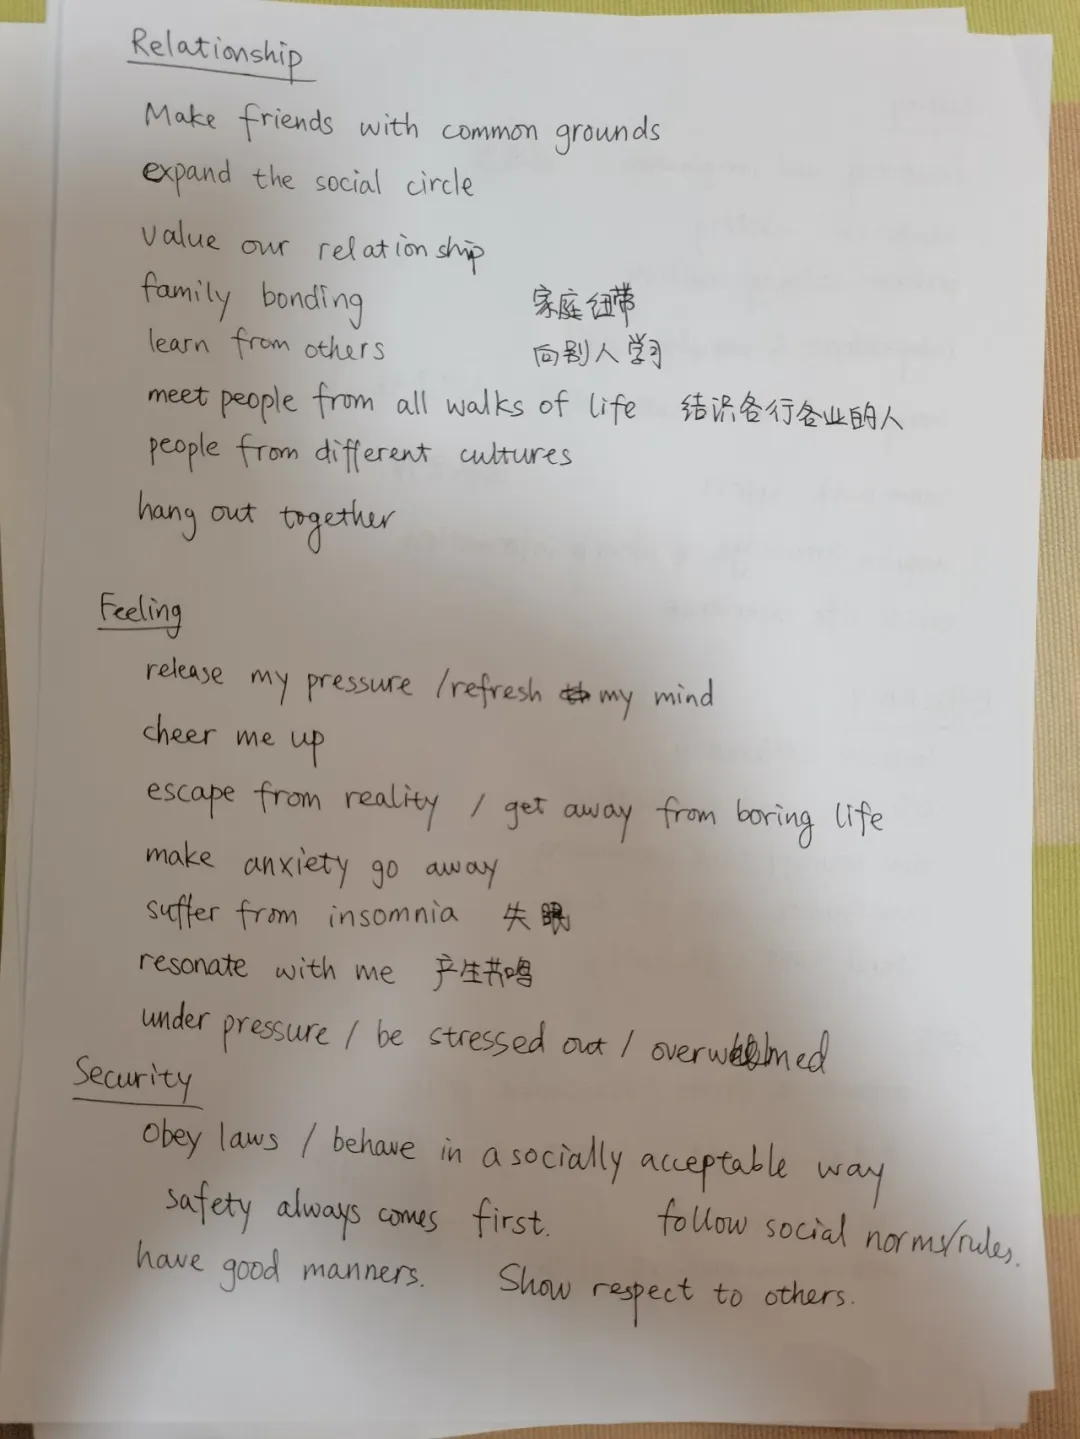 Relationship
Make friends with common grounds
expand the social circle
value our relationship
family bonding 家庭纽带
learn from others 向别人学习
meet people from all walks of life 结识各行各业的人
people from different cultures
hang out together
Feeling
release my pressure /refresh my mind
cheer me up
escape from reality / get away from boring life
make anxiety go away
suffer from insomnia 失眠
resonate with me 产生共鸣
under pressure / be stressed out / overwhelmed
Security
Obey laws / behave in a socially acceptable way
safety always comes first. follow social norms/rules.
have good manners. Show respect to others.